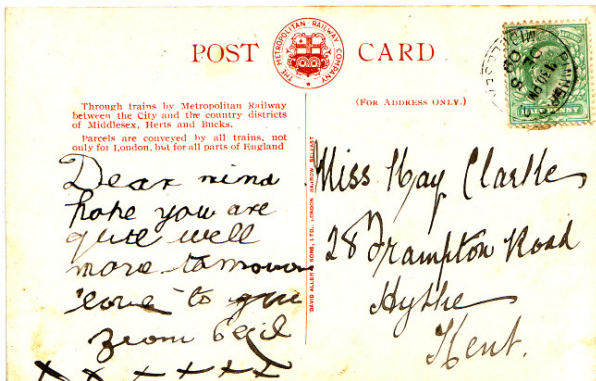 POST CARD
THE METROPOLITAN RAILWAY COMPANY
Through trains by Metropolitan Railway
between the City and the country districts
of Middlesex, Herts and Bucks.
Parcels are conveyed by all trains, not
only for London, but for all parts of England
(FOR ADDRESS ONLY.)
Dear nina
hope you are
quite well
more tomorrow
love to you
from Cecil
x x x x x x
DAVID ALLEN & SONS, LTD., LONDON, HARROW, BELFAST
Miss Kay Clarke
28 Frampton Road
Hythe
Kent.
PINNER